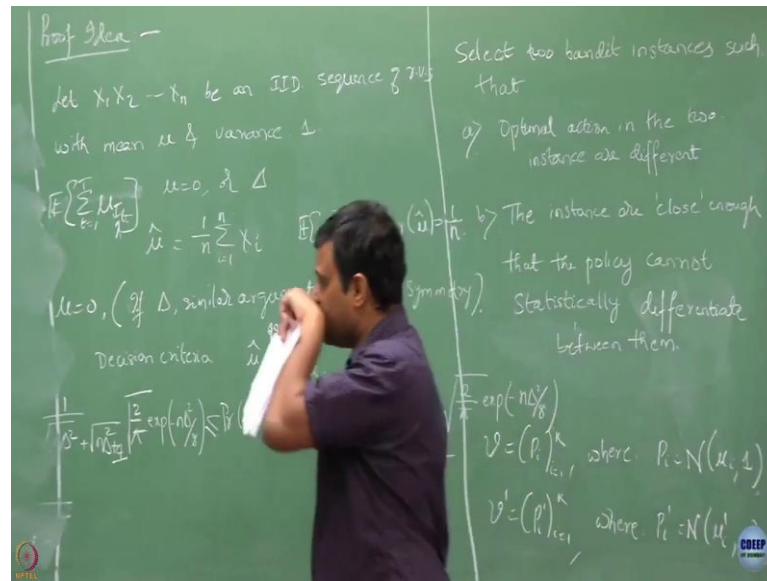 Proof Idea —
Let X₁ X₂ --- Xₙ be an IID sequence of r.v.s
with mean μ & variance 1.
E{∑ᵀₜ₌₁ μ_Iₜ} μ=0, or Δ
μ̂ = 1/n ∑ⁿᵢ₌₁ Xᵢ E[ (μ̂)=1/n.
μ=0, (if Δ, similar argument Symmetry).
Decision criteria μ̂
√(2/π) exp(-nΔ²/8) ≤ Pr(
√(2/π) exp(-nΔ²/8)
Select two bandit instances such
that
a) Optimal action in the two
instance are different
b) The instance are 'close' enough
that the policy cannot
Statistically differentiate
between them.
ν=(Pᵢ)ᴷᵢ₌₁, where Pᵢ=N(μᵢ,1)
ν'=(Pᵢ')ᴷᵢ₌₁, where Pᵢ'=N(μ'
NPTEL
CDEEP